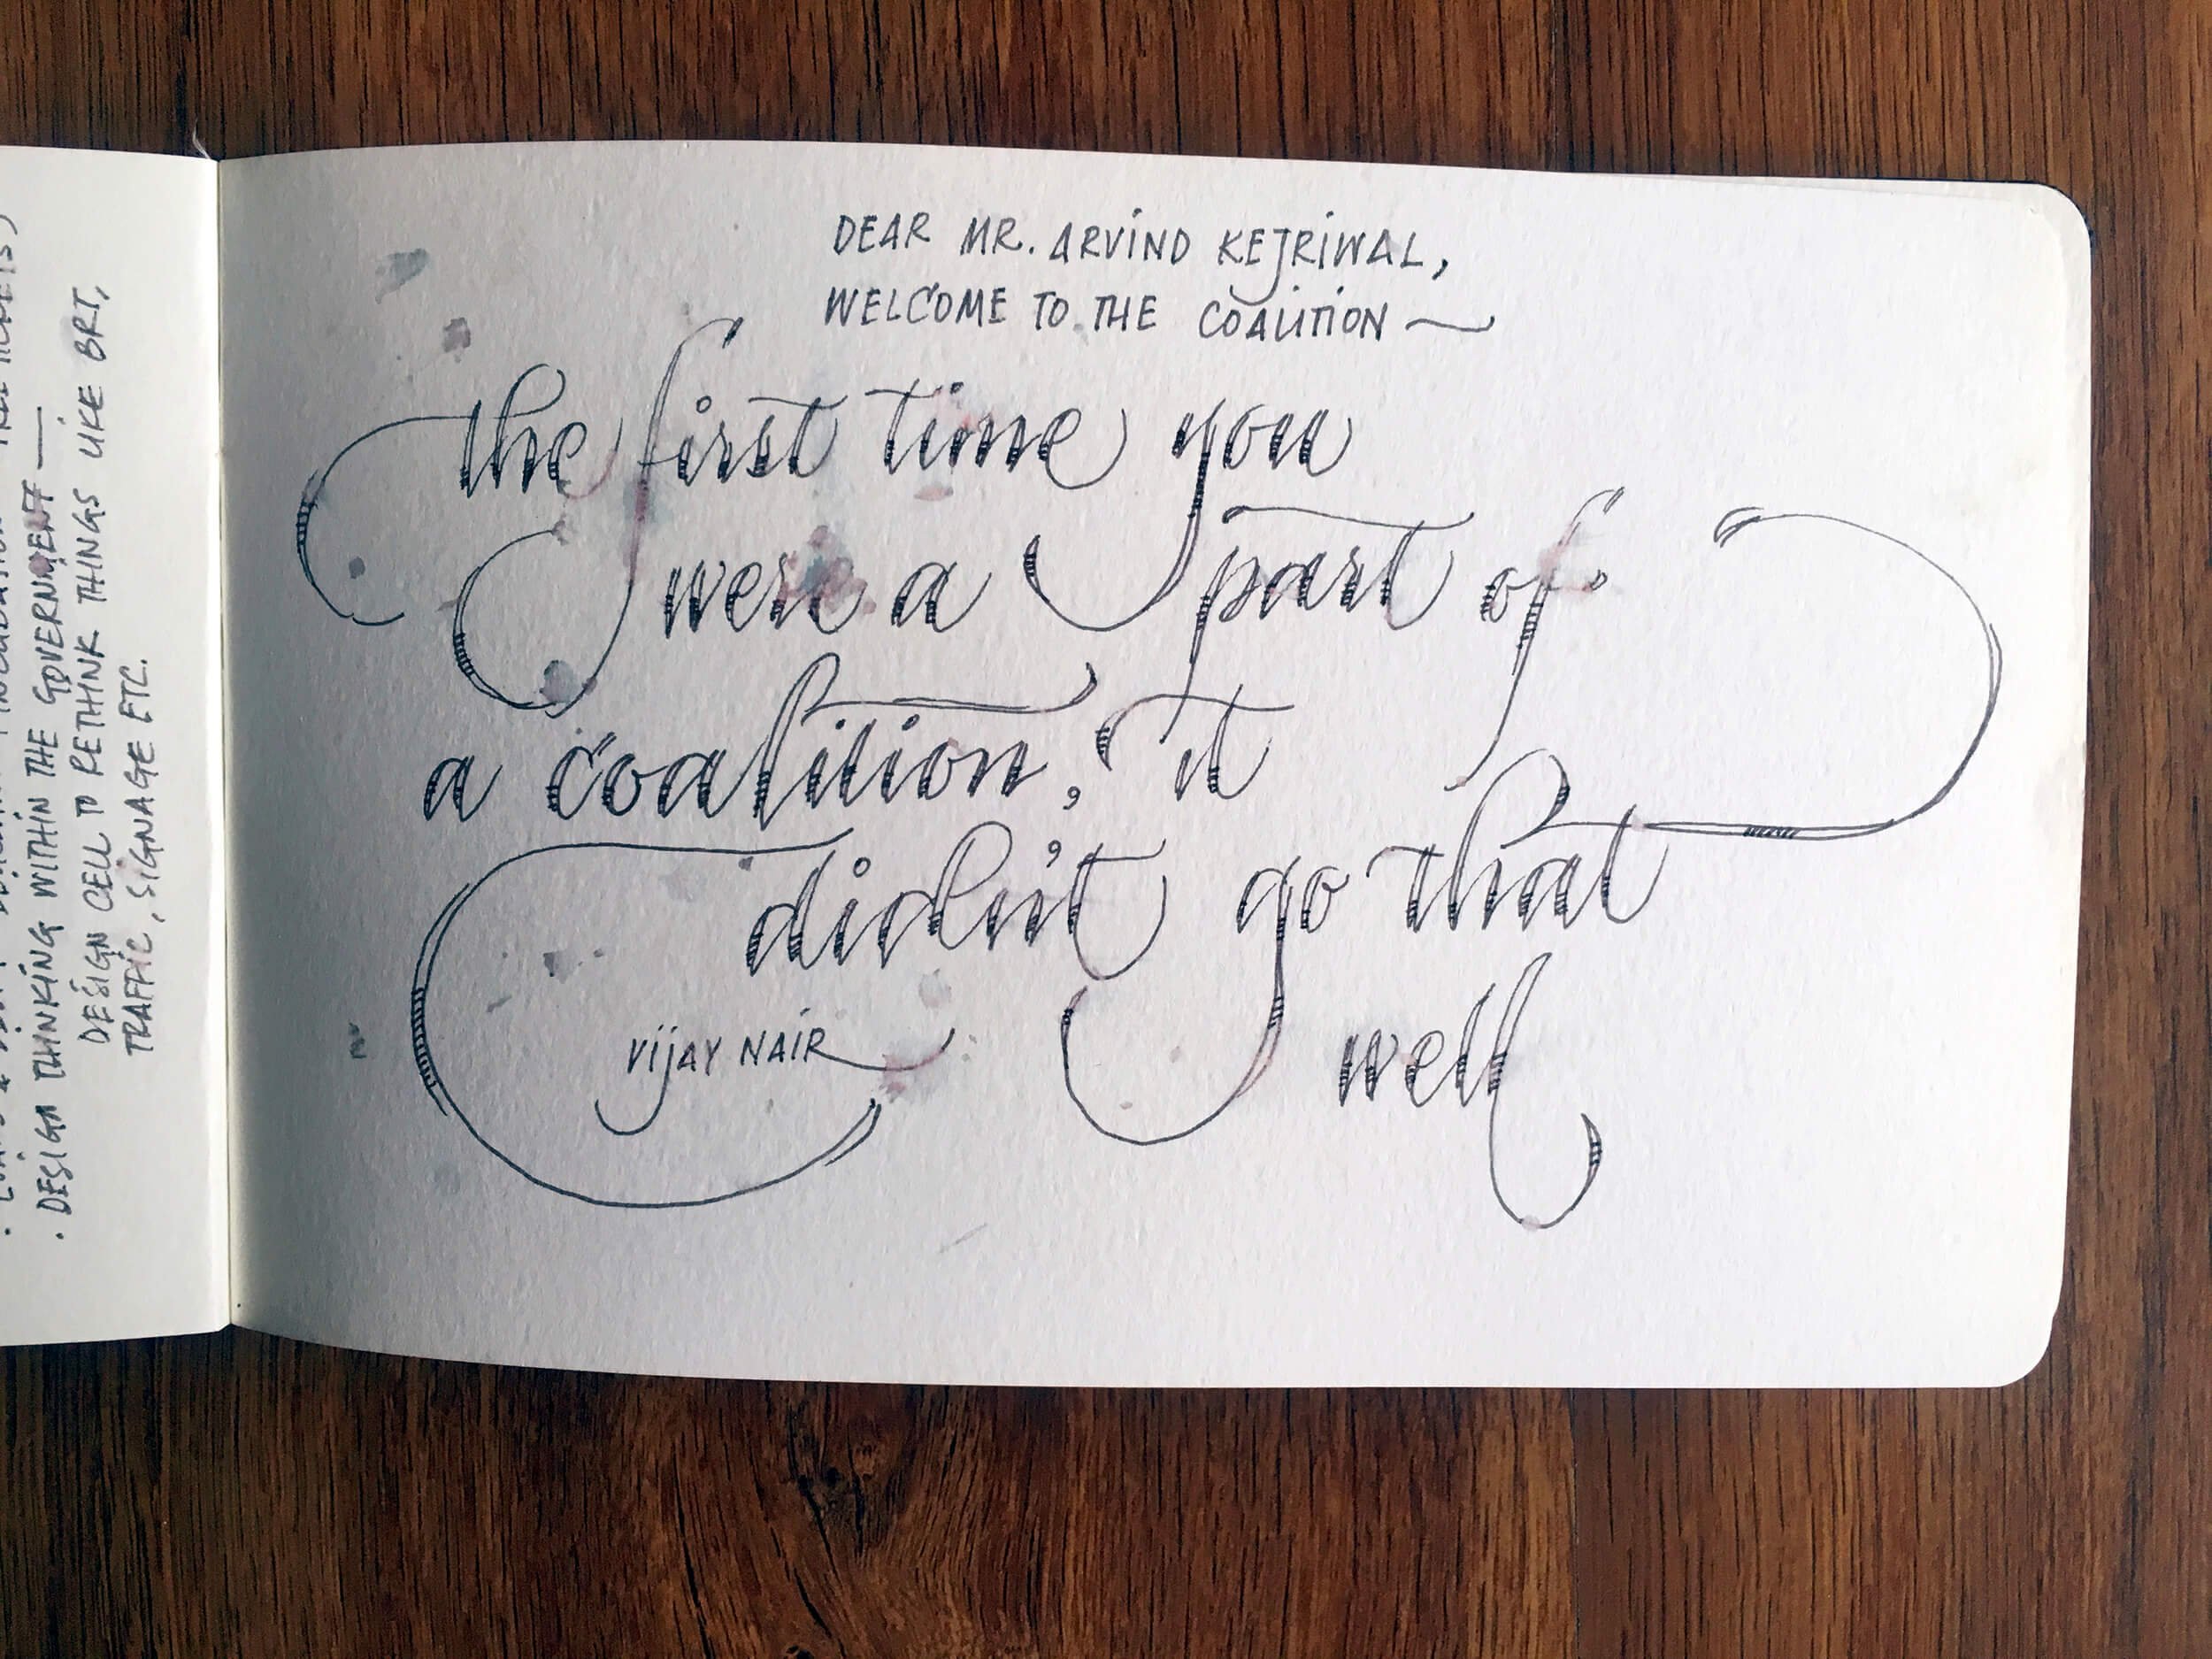 DEAR MR. ARVIND KEJRIWAL,
WELCOME TO THE COALITION —
the first time you
were a part of
a coalition, it
didn't go that
well
VIJAY NAIR
. DESIGN THINKING WITHIN THE GOVERNMENT —
DESIGN CELL TO RETHINK THINGS LIKE BRT,
TRAFFIC, SIGNAGE ETC.